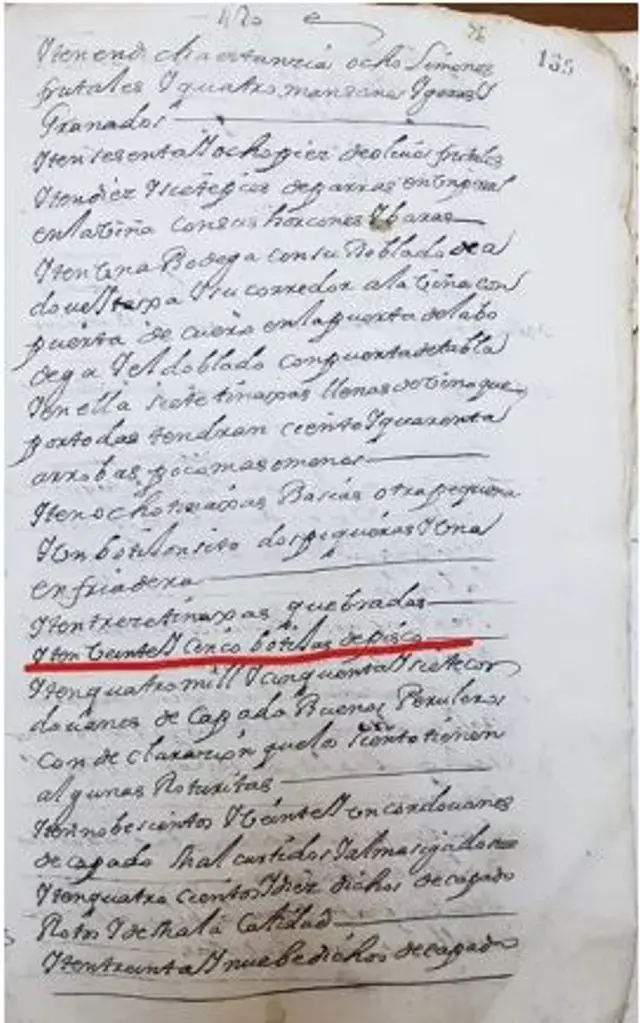 420
135
Yten en dicha estanzia ocho limones
frutales Y quatro manzanos Y peras Y
Granados
Yten sesenta Y ocho piez de oliuos frutales
Yten diez Y siete pies de parras en
en la Viña con sus horcones Y baras
Yten Vna Bodega con su doblado de a
dos Y su corredor a la Viña con
puerta de cuero en la puerta de la bo
dega Y el doblado con puerta de tabla
Y en ella siete tinaxas llenas de Vino que
por todas tendran ciento Y quarenta
arrobas poco mas o menos
Yten ocho tinaxas Basias otra pequeña
Y Vn botiltonsito dos pequeñas Y Vna
enfriadera
Yten trece tinaxas quebradas
Yten Veinte Y cinco botixas de pisco
Yten quatro mill Y cinquenta Y siete cor
douanes de Capado Buenos Peruleros
con declarazion que los siento tienen
algunas Roturitas
Yten nobescientos Y Veinte Y Vn cordouanes
de capado Mal curtidos Y almasigados
Yten quatro cientos Y diez dichos de capado
Rotos Y de Mala Calidad
Yten treinta Y nuebe dichos de capado